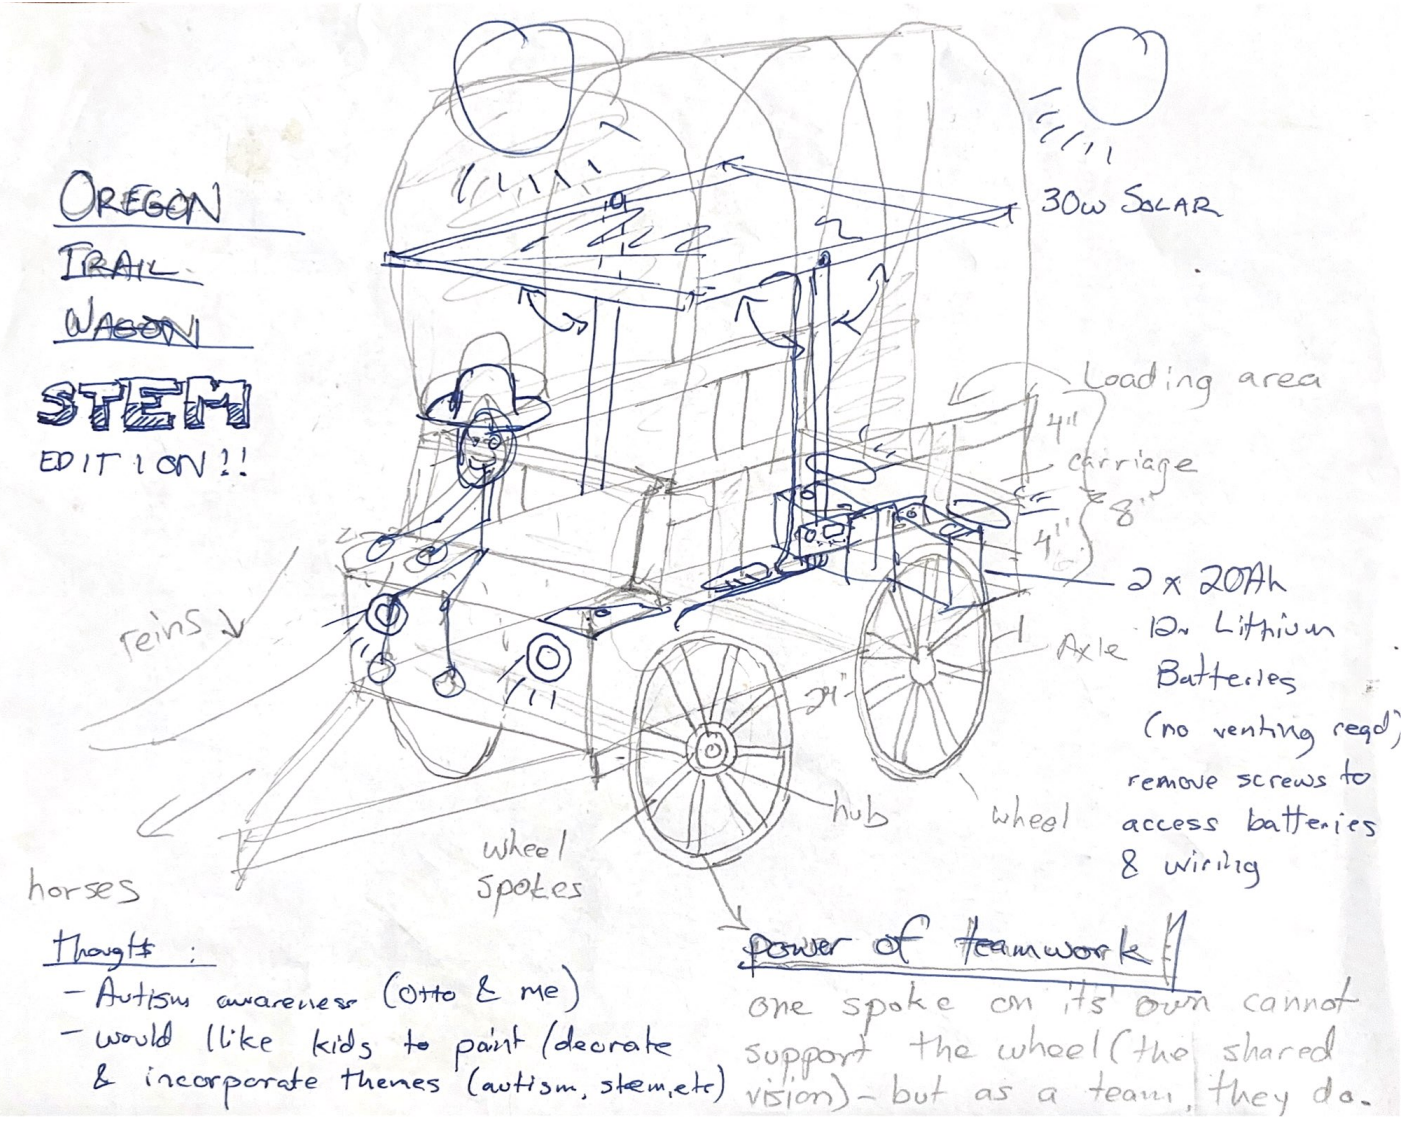 OREGON
TRAIL
WAGON
STEM
EDITION!!
30W SOLAR
Loading area
4"
carriage
8"
4"
2 x 20Ah
12v Lithium
Batteries
(no venting reqd)
remove screws to
access batteries
& wiring
reins
Axle
24"
hub
wheel
wheel
spokes
horses
thoughts:
- Autism awareness (Otto & me)
- would llike kids to paint/decorate
& incorporate themes (autism, stem, etc)
power of teamwork
one spoke on its' own cannot
support the wheel (the shared
vision) - but as a team, they do.